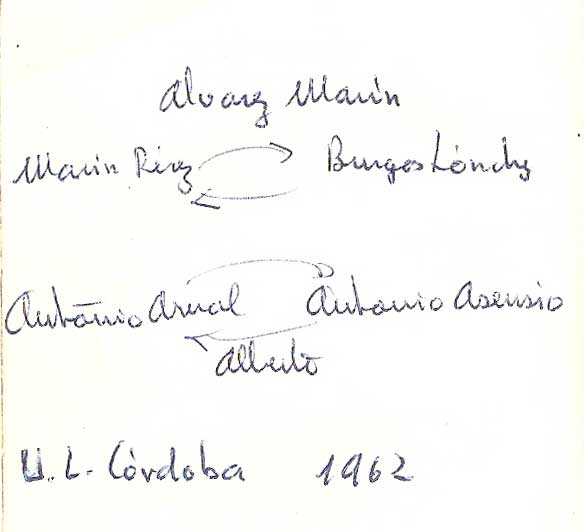 Alvarez Marin
Marin Pérez Burgos Sánchz
António Arenal Antonio Asensio
Alberto
U. L. Córdoba 1962